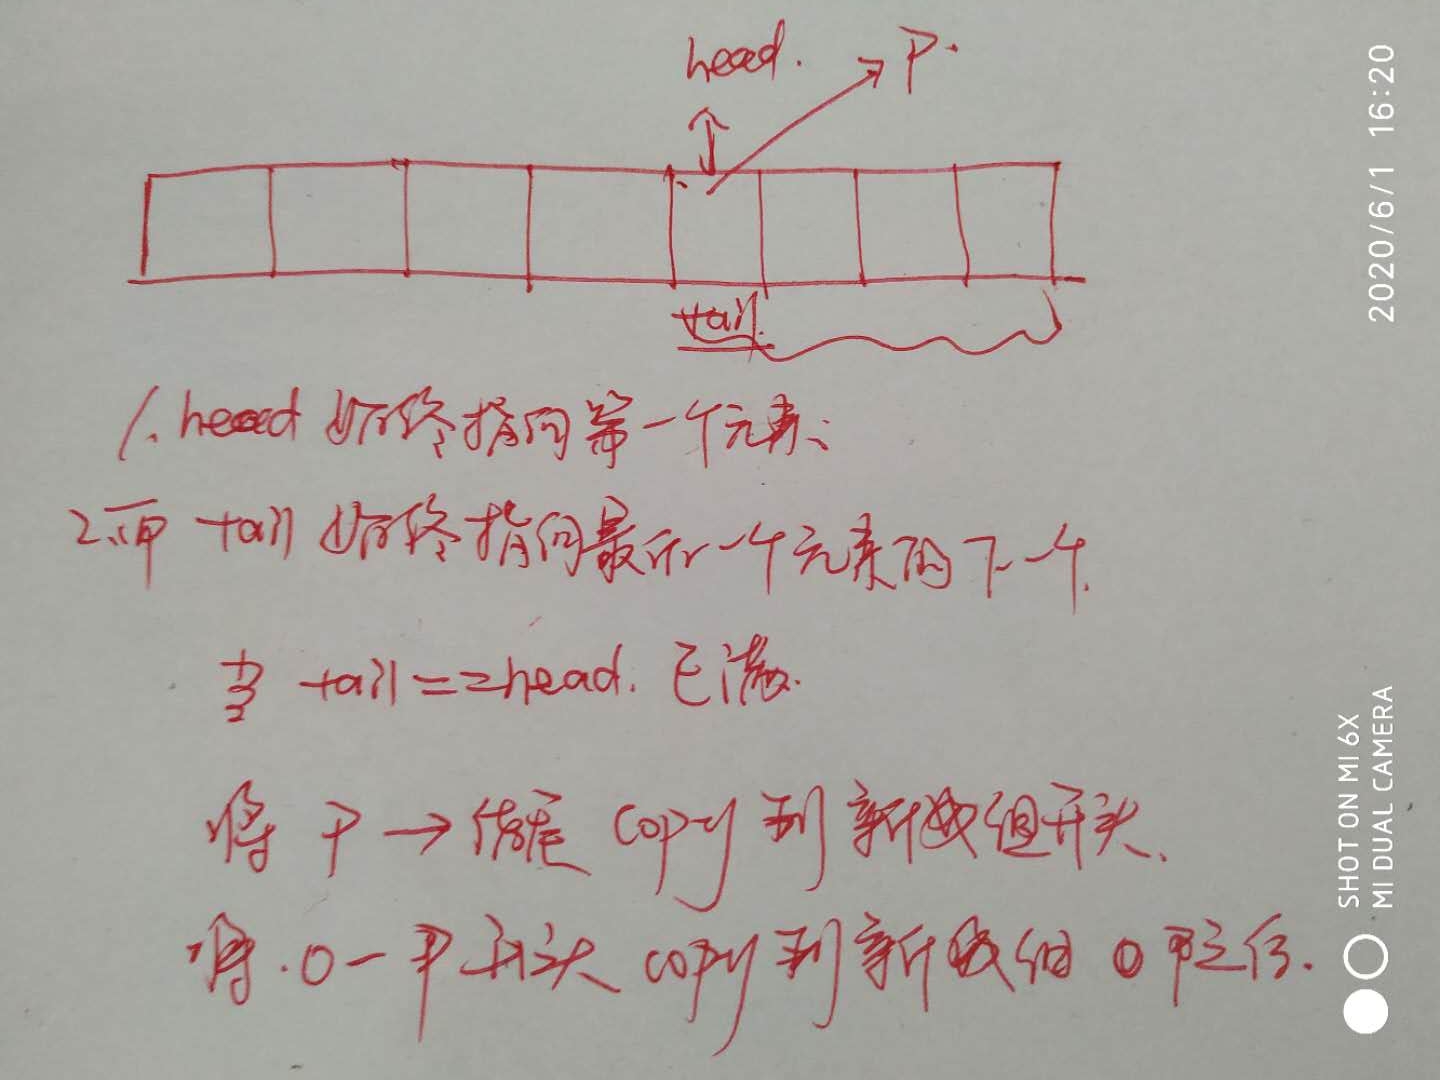 head. P.
tail.
1. head 始终指向第一个元素;
2. tail 始终指向最后一个元素的下一个.
当 tail==head. 已满.
将 P → 结尾 copy 到 新数组开头.
将 0-P 开头 copy 到新数组 P之后.
2020/6/1 16:20
SHOT ON MI 6X
MI DUAL CAMERA